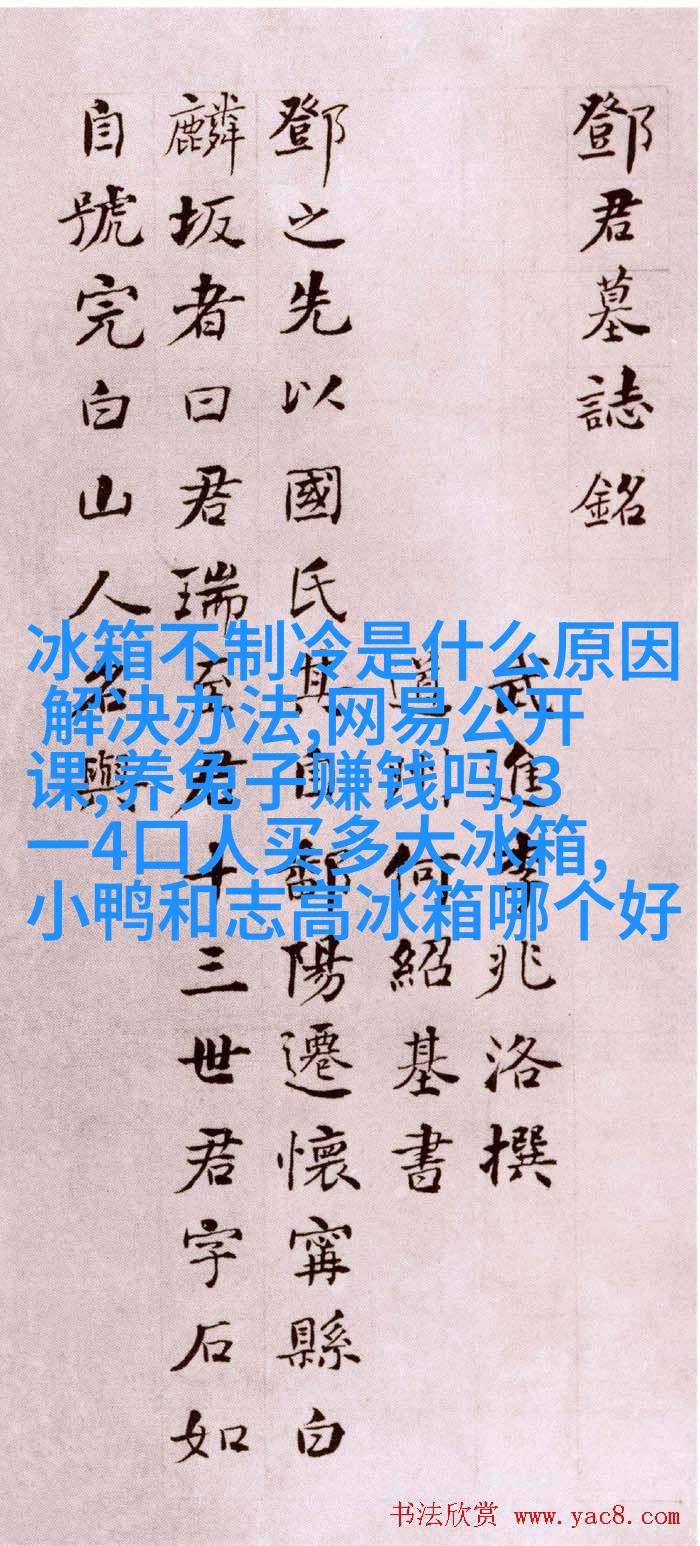 鄧君墓誌銘
武進李兆洛撰
道州何紹基書
鄧之先以國氏其自鄱陽遷懷寗縣白
麟坂者曰君瑞至君十三世君字石如
自號完白山人名與
冰箱不制冷是什么原因
解决办法,网易公开
课,养兔子赚钱吗,3
一4口人买多大冰箱,
小鸭和志高冰箱哪个好
书法欣赏 www.yac8.com